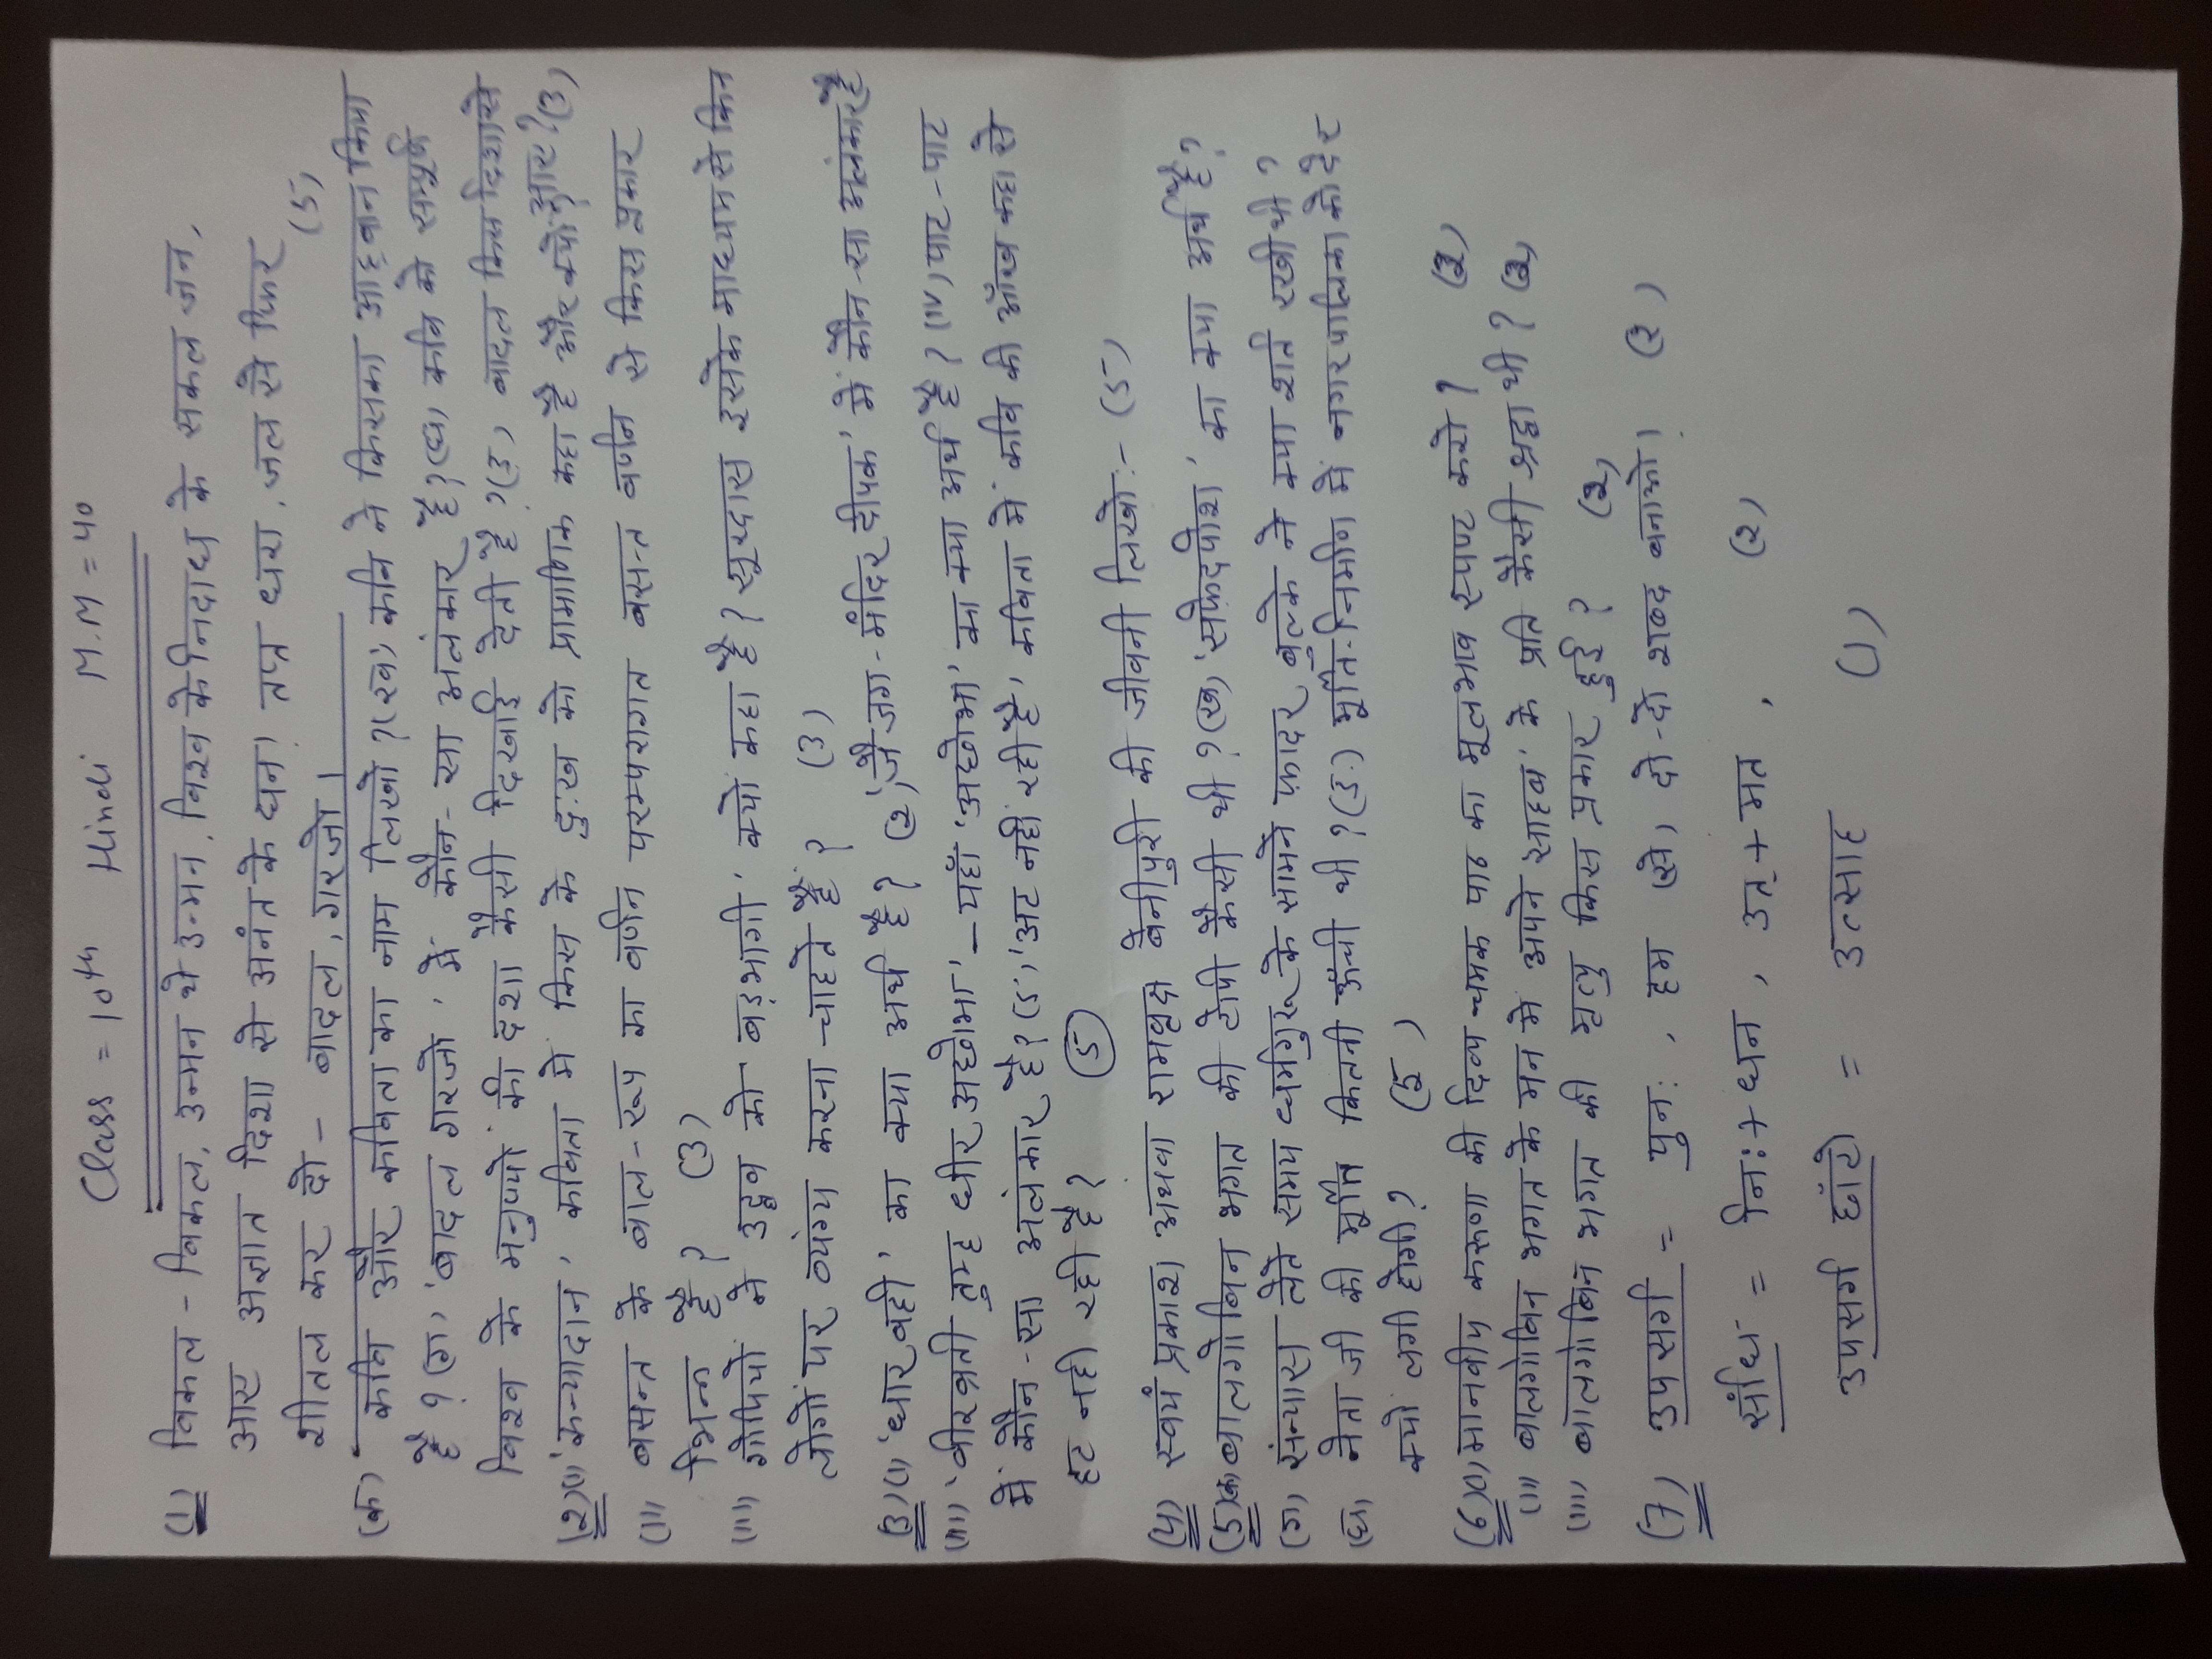 Class = 10th Hindi M.M = 40
(1) विकल - विकल, उन्मन थे उन्मन, विश्व के निदाघ के सकल जन,
आए अज्ञात दिशा से अनंत के घन। तप्त धरा, जल से फिर
शीतल कर दो - बादल, गरजो। (5)
(क) कवि और कविता का नाम लिखो? (ख) कवि ने किसका आह्वान किया
है? (ग) 'बादल गरजो' में कौन-सा अलंकार है? (घ) कवि को सम्पूर्ण
विश्व के मनुष्यों की दशा कैसी दिखाई देती है? (ङ) बादल किस दिशा से
(2)(i) 'कन्यादान' कविता में किस के दुःख को प्रामाणिक कहा है और क्यों? (3)
(ii) बसन्त के बाल-रूप का वर्णन परम्परागत बसन्त वर्णन से किस प्रकार
भिन्न है? (3)
(iii) गोपियों ने उद्धव को 'बड़भागी' क्यों कहा है? सूरदास इसके माध्यम से किन
लोगों पर व्यंग्य करना चाहते हैं? (3)
(3)(i) 'धार बही' का क्या अर्थ है? (2) 'जै जग-मंदिर दीपक' में कौन-सा अलंकार है
(iii) 'बीरब्रती तुम्ह धीर अछोभा' - यहाँ 'अछोभा' का क्या अर्थ है? (iv) पाट-पाट
में कौन-सा अलंकार है? (5) 'अट नहीं रही है' कविता में कवि की आँख कहा से
हट नही रही है? (5)
(4) स्वयं प्रकाश अथवा रामवृक्ष बेनीपुरी की जीवनी लिखो:- (5)
(5)(क) बालगोबिन भगत की टोपी कैसी थी? (ख) 'सफेदपोश' का क्या अर्थ है?
(ग) संन्यास लेते समय धर्मगुरू के सामने फ़ादर बुल्के ने क्या शर्त रखी थी?
(घ) नेता जी की मूर्ति कितनी ऊँची थी? (ङ) मूर्ति-निर्माण में नगरपालिका को देर
क्यों लगी होगी? (5)
(6)(i) मानवीय करूणा की दिव्य चमक पाठ का मूलभाव स्पष्ट करो? (2)
(ii) बालगोबिन भगत के मन में अपने साहब के प्रति कैसी श्रद्धा थी? (2)
(iii) बालगोबिन भगत की मृत्यु किस प्रकार हुई? (2)
(7) उपसर्ग = पुन: , हम (से) दो-दो शब्द बनाओ। (2)
संधि = नि: + धन , उत् + मत , (2)
उपसर्ग छाँटो = उत्साह (1)